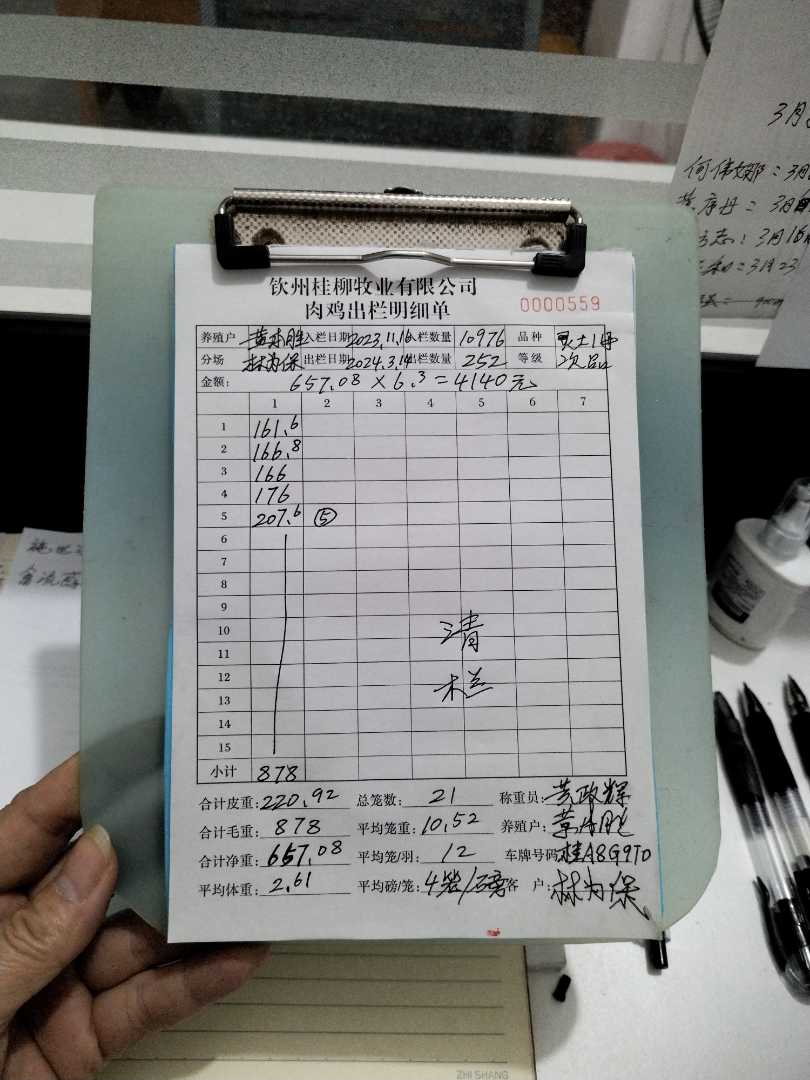 钦州桂柳牧业有限公司
肉鸡出栏明细单
0000559
养殖户 入栏日期 2023.11.16 入栏数量 10976 品种 灵土1号
分场 林为保 出栏日期 2024.3.14 出栏数量 252 等级 次品
金额: 657.08 × 6.3 = 4140元
1 2 3 4 5 6 7
1 161.6
2 166.8
3 166
4 176
5 207.6 ⑤
6
7
8
9
10 清
11
12
13 栏
14
15
小计 878
合计皮重: 220.92 总笼数: 21 称重员: 黄政辉
合计毛重: 878 平均笼重: 10.52 养殖户:
合计净重: 657.08 平均笼/羽: 12 车牌号码: 桂A8G9T0
平均体重: 2.61 平均磅/笼: 4笼/磅 客 户: 林为保
3月
何伟娜:3月
3月
志:3月16
3月23
ZHI SHANG